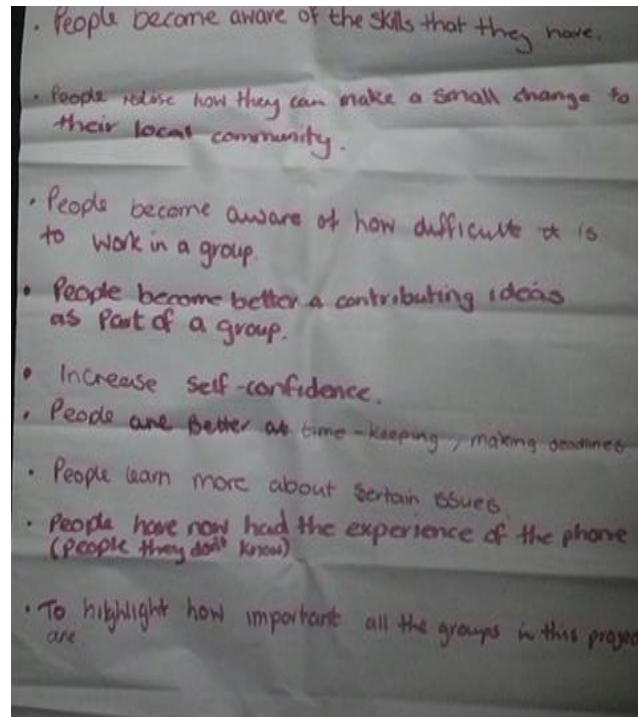 · People become aware of the skills that they have.
· People relise how they can make a small change to
their local community.
· People become aware of how difficulte it is
to work in a group.
· People become better a contributing ideas
as Part of a group.
· Increase self-confidence.
· People are Better at time-keeping, making deadlines
· People learn more about sertain issues.
· People have now had the experience of the phone
(People they don't know)
· To highlight how important all the groups in this project
are.